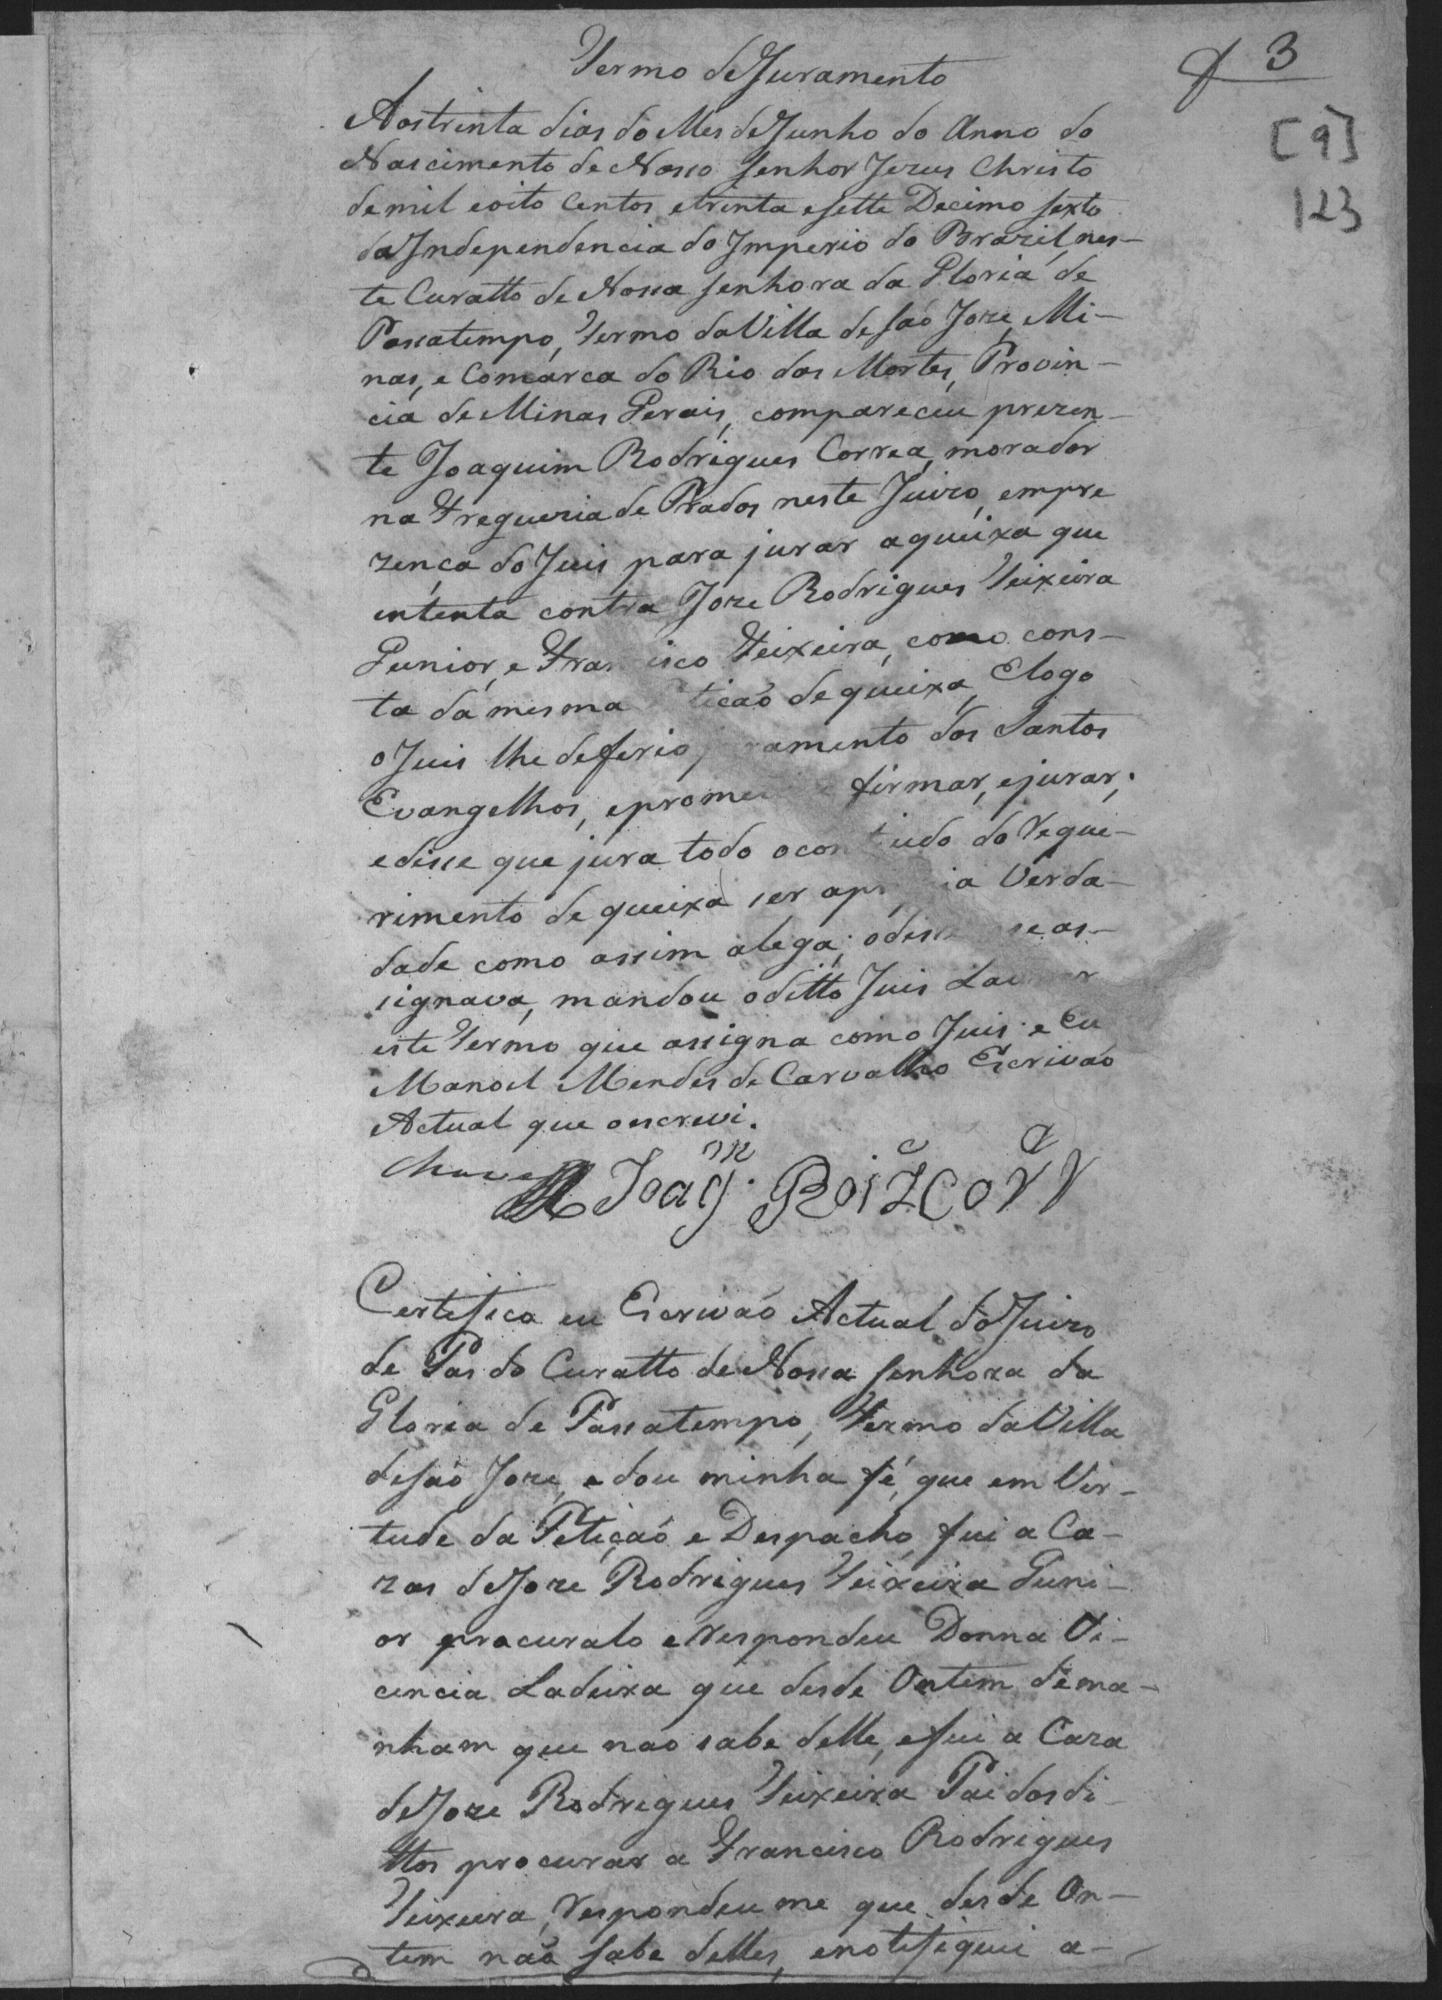 Termo de Juramento
3
[9]
123
Aos trinta dias do Mes de Junho do Anno do
Nascimento de Nosso Senhor Jezus Christo
de mil e oito Centos e trinta e sette Decimo sexto
da Independencia do Imperio do Brazil, nes-
te Curatto de Nossa Senhora da Gloria de
Passatempo, Termo da Villa de São Joze, Mi-
nas, e Comarca do Rio das Mortes, Provin-
cia de Minas Gerais, compareceu prezen-
te Joaquim Rodrigues Correa, morador
na Freguezia de Prados neste Juizo, em pre
zença do Juis para jurar a queixa que
intenta contra Joze Rodrigues Teixeira
Junior, e Fran isco Teixeira, como cons-
ta da mesma tição de queixa, E logo
o Juis lhe deferio j ramento dos Santos
Evangelhos, e prome firmar, e jurar;
e disse que jura todo o con udo do reque-
rimento de queixa ser a pr ia Verda-
dade como assim alega; o diss se as-
signava, mandou o ditto Juis Lav r
este Termo que assigna como Juis e Eu
Manoel Mendes de Carvalho Escrivão
Actual que o escrevi.
Chaves Joaqm. Roiz Corra
Certifico eu Escrivão Actual do Juizo
de Pas do Curatto de Nossa Senhora da
Gloria de Passatempo, Termo da Villa
de São Joze, e dou minha fé, que em Vir-
tude da Petição e Despacho, fui a Ca-
zas de Joze Rodrigues Teixeira Juni-
or procuralo e respondeu Donna Vi-
cencia Ladeira que desde Ontem de ma-
nham que nao sabe delle, e fui a Caza
de Joze Rodrigues Teixeira Pai dos di-
ttos procurar a Francisco Rodrigues
Teixeira, respondeu me que desde On-
tem não sabe delles, e notifiquei a-